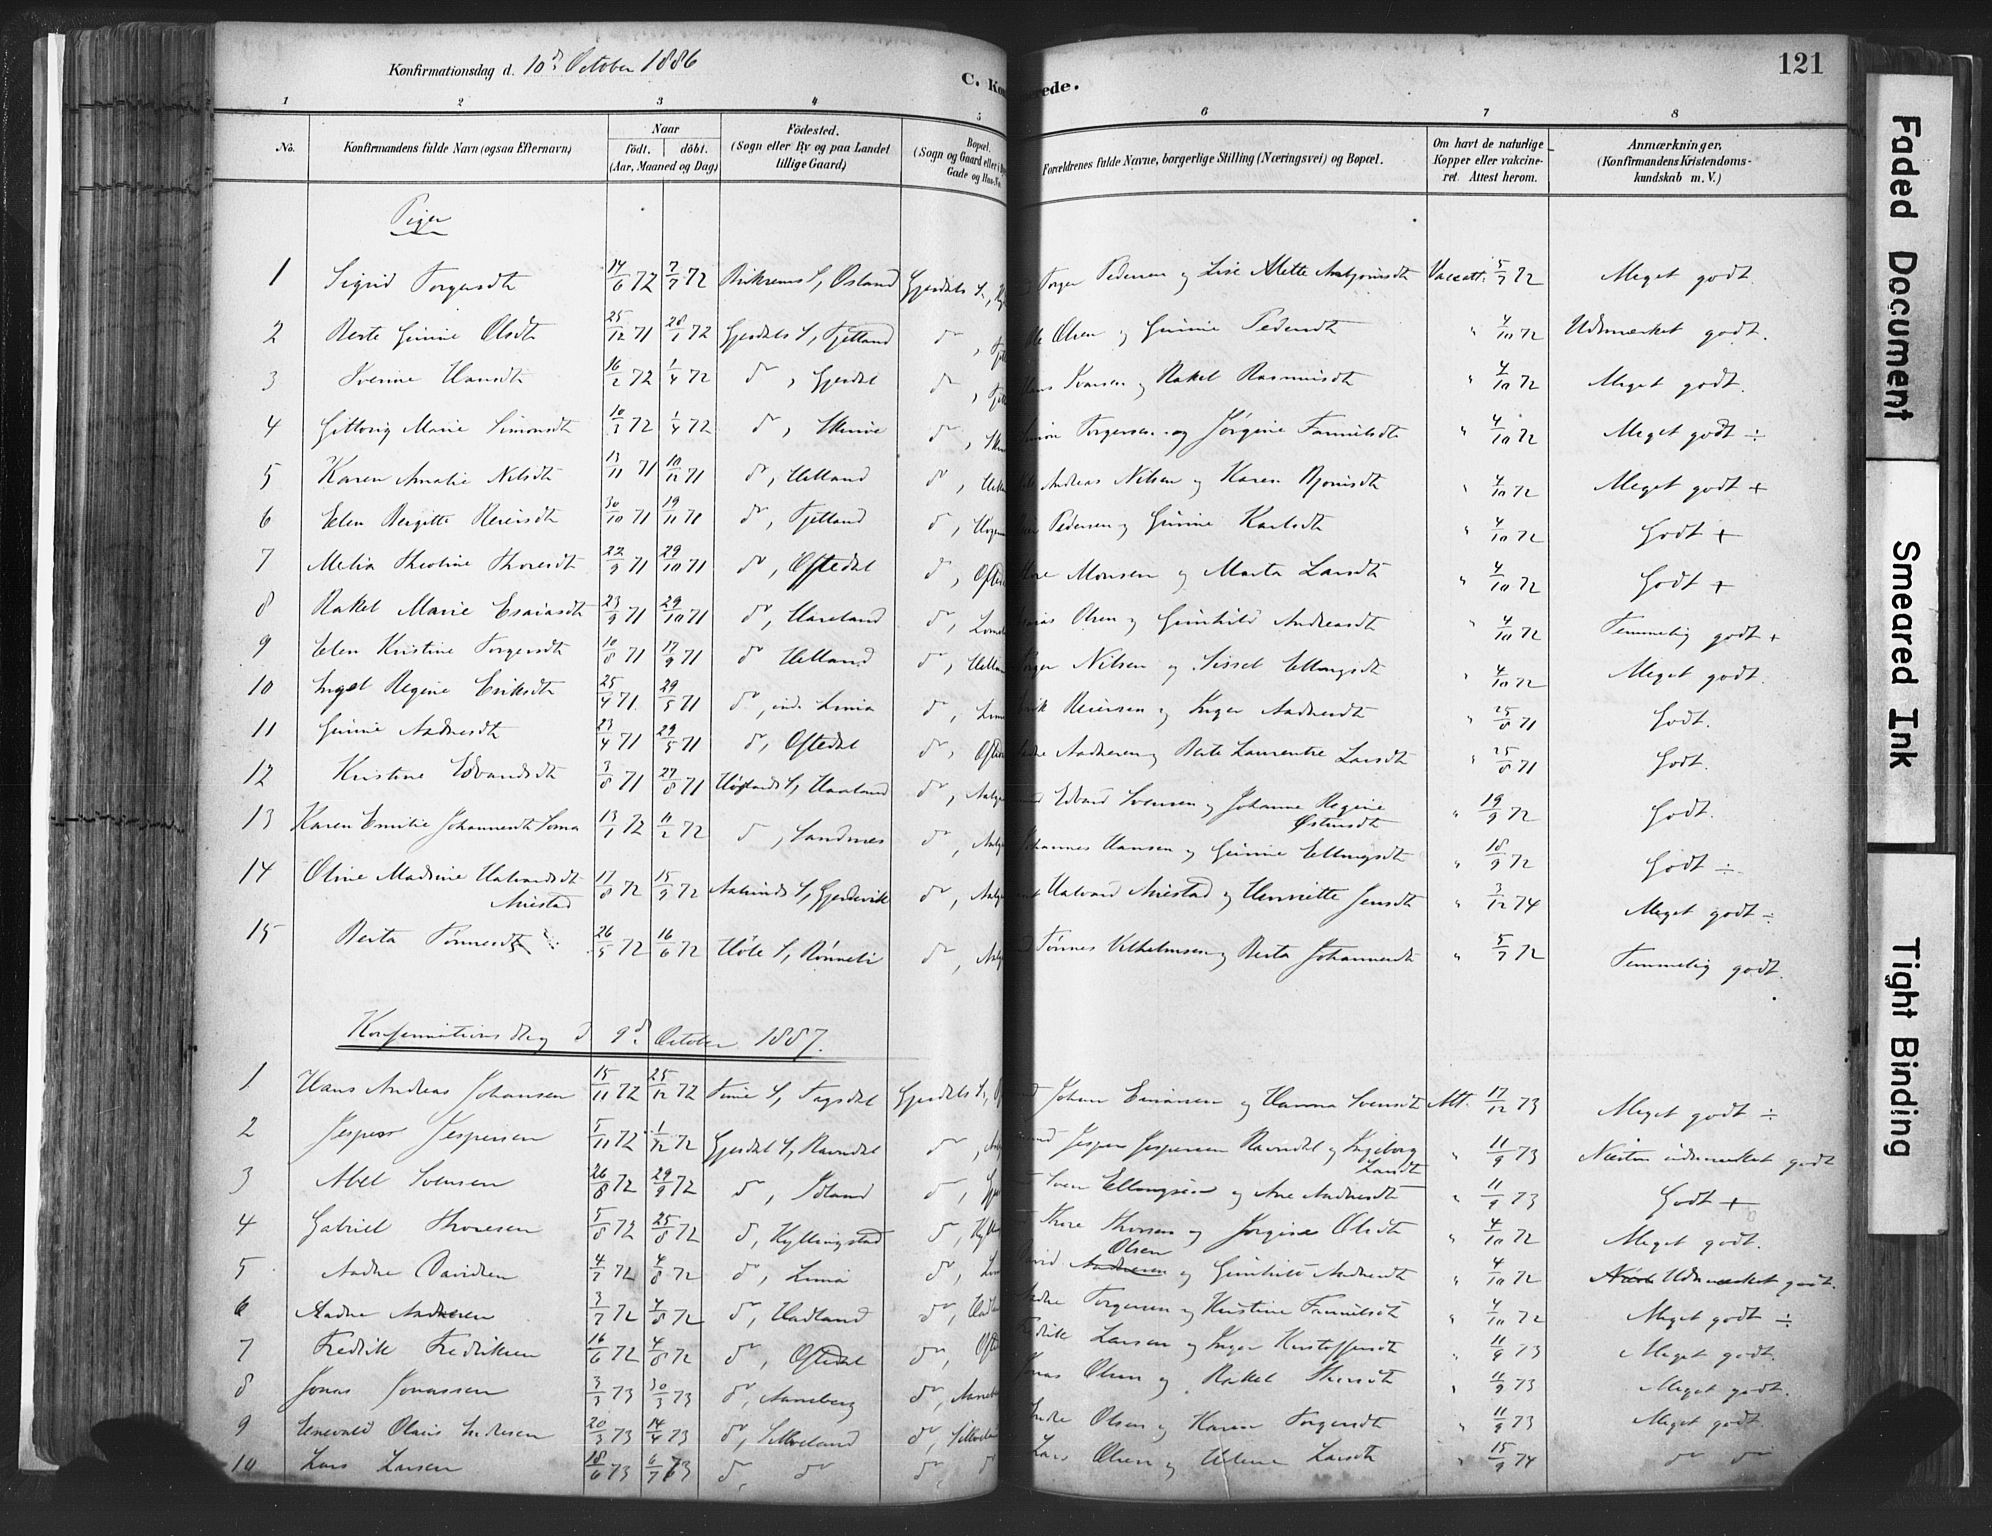 Konfirmationsdag d. 10d October 1886
C. Ko
erede.
121
1 2 3 4 5 6 7 8
No. Konfirmandens fulde Navn (ogsaa Efternavn) Naar födt. döbt. (Aar, Maaned og Dag) Födested. (Sogn eller By og paa Landet tillige Gaard) Bopæl. (Sogn og Gaard eller i Gade og Hus-No. Forældrenes fulde Navne, borgerlige Stilling (Næringsvei) og Bopæl. Om havt de naturlige Kopper eller vakcineret. Attest herom. Anmærkninger, (Konfirmandens Kristendomskundskab m. V.)
Piger
1 Sigrid Torgersdt 14/6 72 7/7 72 Birkrems S, Osland Gjesdals S., Torger Pedersen og Lise Mette Vaccatt. 5/7 72 Meget godt.
2 Berte Gunie Olsdt 25/12 71 28/1 72 Gjesdals S, Fjetland do, Ole Olsen og Gunie Pedersdt " 4/10 72 Udmærket godt.
3 Sverine Hansdt 16/2 72 1/4 72 do, Gjesdal do, Hans Svensen og Rakel Rasmusdt " 4/10 72 Meget godt.
4 Gitlorig Marie Simonsdt 10/3 72 1/4 72 do, Skurve do, Simon Torgersen og Jørgine Tønnesdt " 4/10 72 Meget godt ÷
5 Karen Amalie Nilsdt 13/11 71 10/12 71 do, Helland do, Andreas Nilsen og Karen Bjornsdt " 4/10 72 Meget godt +
6 Elen Bergitte Reiersdt 30/10 71 19/11 71 do, Fjetland do, Pedersen og Gunine Karlsdt " 4/10 72 Godt +
7 Melia Theoline Thoresdt 22/9 71 29/10 71 do, Oftedal do, Thore Monsen og Marta Larsdt " 4/10 72 Godt +
8 Rakel Marie Esaiasdt 23/9 71 29/10 71 do, Haaland do, Esaias Olsen og Gunhild Andreasdt " 4/10 72 Temmelig godt +
9 Elen Kristine Torgersdt 10/8 71 17/9 71 do Helland do, Torger Nilsen og Sissel Ellingsdt " 4/10 72 Meget godt.
10 Inger Regine Eriksdt 25/4 71. 29/5 71 do, Limia do, Erik Reiersen og Inger Aadnesdt " 25/8 71 Godt.
11 Gunie Aadnesdt 23/4 71 29/5 71 do, Oftedal do, Aadne Aadnesen og Berte Laurentse Larsdt " 25/8 71 Godt.
12 Kristine Edvardsdt 3/8 71 27/8 71 Høilands S, Haaland do, Edvard Svensen og Johanne Regine Østensdt " 19/9 72 Godt.
13 Karen Emilie Johannesdt Soma 13/1 72 11/2 72 do, Sandnes do, Johannes Hansen og Gunnie Ellingsdt " 18/9 72 Godt ÷
14 Oline Madsine Halvardsdt Auestad 17/8 72 15/9 72 S, Gjerdevik do, Halvard Auestad og Henriette Jensdt " 3/12 74 Meget godt ÷
15 Berta Tønnesdt 26/5 72 16/6 72 Høle S, Rønneli do, Tønnes Vilhelmsen og Berta Johannesdt " 5/7 72 Temmelig godt.
Konfirmations dag d 9d October 1887.
1 Hans Andreas Johansen 15/11 72 25/12 72 Time S, Fogsdal Gjesdals S., Johan Einarsen og Hanna Svensdt Att. 17/12 73 Meget godt ÷
2 Jesper Jespersen 5/11 72 1/12 72 Gjesdal S, Ravndal do, Jesper Jespersen Ravndal og Ingeborg Larsdt " 11/9 73 Næsten udmærket godt
3 Abel Svensen 26/8 72 29/9 72 do, Idland do, Sven Ellingsen og Ane Andersdt " 11/9 73 Godt +
4 Gabriel Thoresen 5/8 72 25/8 72 do, Kyllingstad do, Thore Thorsen og Jorgine Olsdt " 4/10 72 Meget godt.
5 Aadne Davidsen 4/7 72 4/8 72 do, Limia do, David Aadnesen Olsen og Gunhild Aadnesdt " 4/10 72 Udmærket godt.
6 Aadne Aadnesen 3/7 72 4/8 72 do, Hadland do, Aadne Torgersen og Kristine Tønnesdt " 4/10 72 Meget godt ÷
7 Fredrik Fredriksen 16/6 72 4/8 72 do, Oftedal do, Fredrik Larsen og Inger Kristoffersdt " 11/9 73 Meget godt.
8 Jonas Jonassen 3/3 73 30/3 73 do, Aaneberg do, Jonas Olsen og Rakel " 11/9 73 Meget godt.
9 Enevald Olaus Andresen 20/3 73 14/4 73 do, Silkveland do, Andre Olsen og Karen Torgersdt " 11/9 73 Meget godt
10 Lars Larsen 18/6 73 6/7 73 do, do do Lars Olsen og Helene Larsdt " 15/9 74 do do
Faded Document
Smeared Ink
Tight Binding